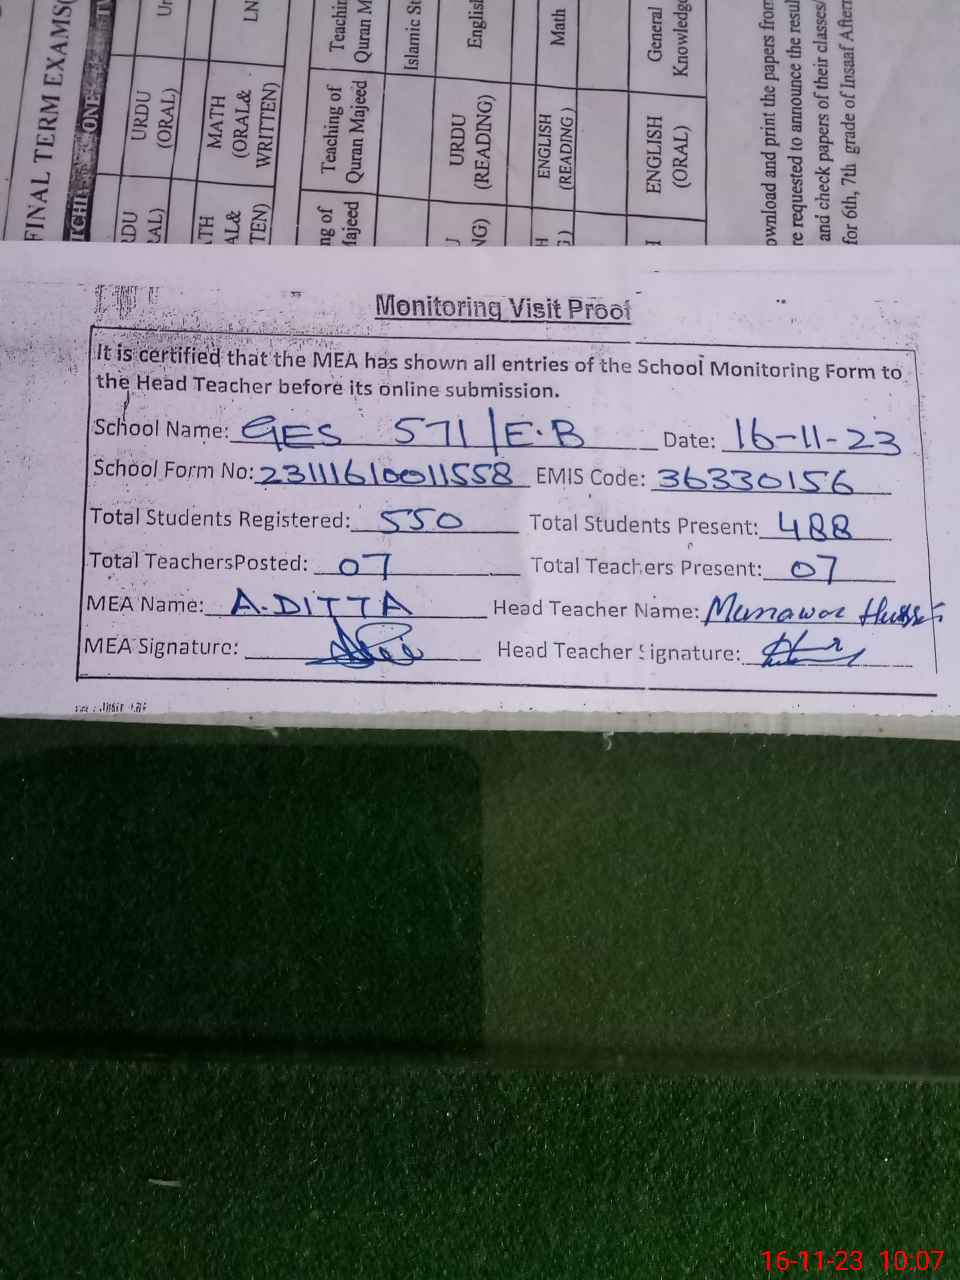 FINAL TERM EXAMS(
ONE
URDU
(ORAL)
MATH
(ORAL&
WRITTEN)
LN
Teaching of
Quran Majeed
Quran M
Islamic St
URDU
(READING)
English
ENGLISH
(READING )
Math
ENGLISH
(ORAL)
General
Knowledge
ownload and print the papers from
re requested to announce the resul
and check papers of their classes/
for 6th, 7th grade of Insaaf Aftern
Monitoring Visit Proof
It is certified that the MEA has shown all entries of the School Monitoring Form to
the Head Teacher before its online submission.
School Name: GES 571/E.B Date: 16-11-23
School Form No: 23111610011558 EMIS Code: 36330156
Total Students Registered: 550 Total Students Present: 488
Total TeachersPosted: 07 Total Teachers Present: 07
MEA Name: A.DITTA Head Teacher Name: Munawar Hussain
MEA Signature: Head Teacher Signature:
16-11-23 10:07